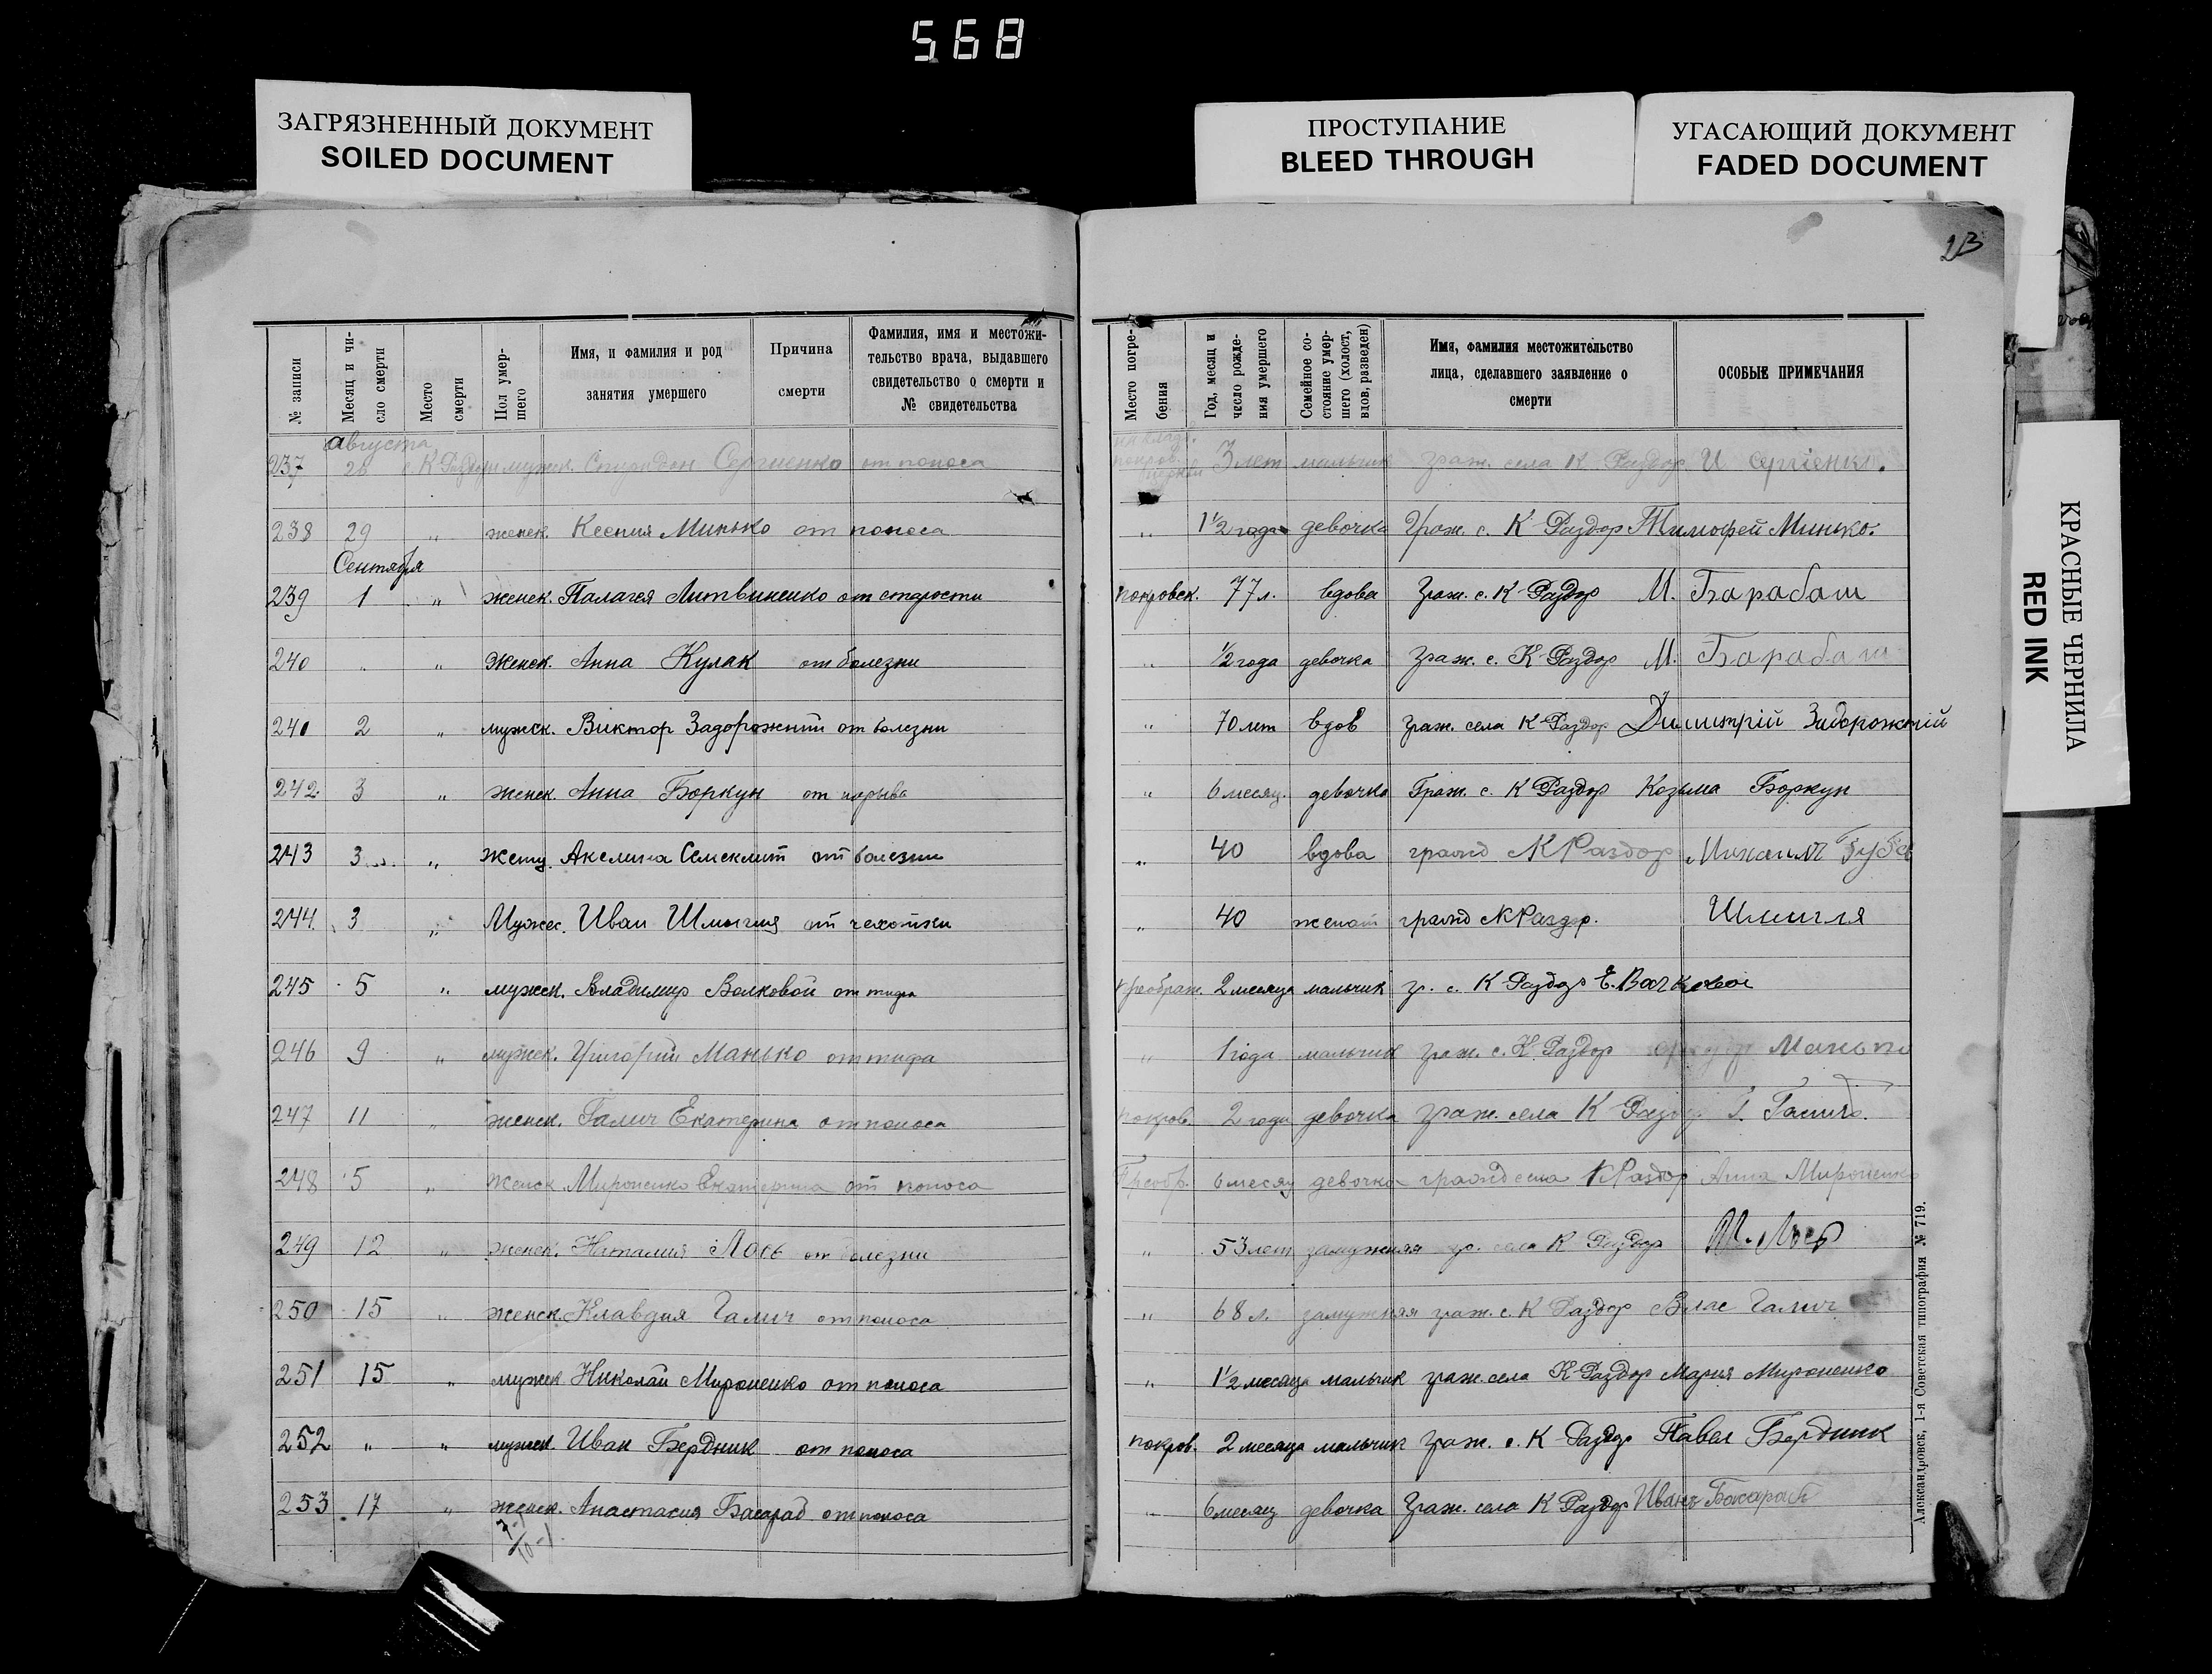 568
ЗАГРЯЗНЕННЫЙ ДОКУМЕНТ
SOILED DOCUMENT
ПРОСТУПАНИЕ
BLEED THROUGH
УГАСАЮЩИЙ ДОКУМЕНТ
FADED DOCUMENT
КРАСНЫЕ ЧЕРНИЛА
RED INK
23
№ записи
Месяц и число смерти
Место смерти
Пол умершего
Имя, и фамилия и род занятия умершего
Причина смерти
Фамилия, имя и местожительство врача, выдавшего свидетельство о смерти и № свидетельства
Место погребения
Год, месяц и число рождения умершего
Семейное состояние умершего (холост, вдов, разведен)
Имя, фамилия местожительство лица, сделавшего заявление о смерти
ОСОБЫЕ ПРИМЕЧАНИЯ
августа
237 28 с. К Раздоры мужск. Спиридон Сергиенко от поноса 3 лет мальчик граж. села К Раздор И Сергіенко.
238 29 " женск. Ксения Минько от поноса " 1½ года девочка Граж. с. К Раздор Тимофей Минько.
Сентября
239 1 " женск. Палагея Литвиненко от старости покровск. 77 л. вдова Граж. с. К Раздор М. Барабаш
240 " " женск. Анна Кулак от болезни " ½ года девочка граж. с. К Раздор М. Барабаш
241 2 " мужск. Виктор Задорожний от болезни " 70 лет вдов граж. села К Раздор Димитрій Задорожній
242 3 " женск. Анна Боркун от нарыва " 6 месяц. девочка Граж. с. К Раздор Козьма Боркун
243 3 " Акелина от болезни " 40 вдова гражд К Раздор Михаил
244 3 " Мужес. Иван от чехотки " 40 женат гражд К Раздор.
245 5 " мужск. Владимир Волковой от тифа преображ. 2 месяца мальчик гр. с. К Раздор Е.
246 9 " мужск. Григорий Манько от тифа " 1 года мальчик граж. с. К Раздор Манько
247 11 " женск. Галич Екатерина от поноса покров. 2 года девочка граж. села К Раздор
248 5 " женск Мироненко Екатерина от поноса Преобр. 6 месяц девочка гражд села К Раздор Анна Мироненко
249 12 " женск. Наталия Лось от болезни " 53 лет замужняя гр. села К Раздор
250 15 " женск. Клавдия Галич от поноса " 68 л. замужняя граж. с. К Раздор Влас Галич
251 15 " мужск Николай Мироненко от поноса " 1½ месяца мальчик граж. села К Раздор Мария Мироненко
252 " " мужск Иван Бердник от поноса покров. 2 месяца мальчик граж. с. К Раздор Павел Бердник
253 17 " женск. Анастасия Басараб от поноса " 6 месяц девочка Граж. села К Раздор Иванъ Басараб
Александровск, 1-я Советская типография № 719.